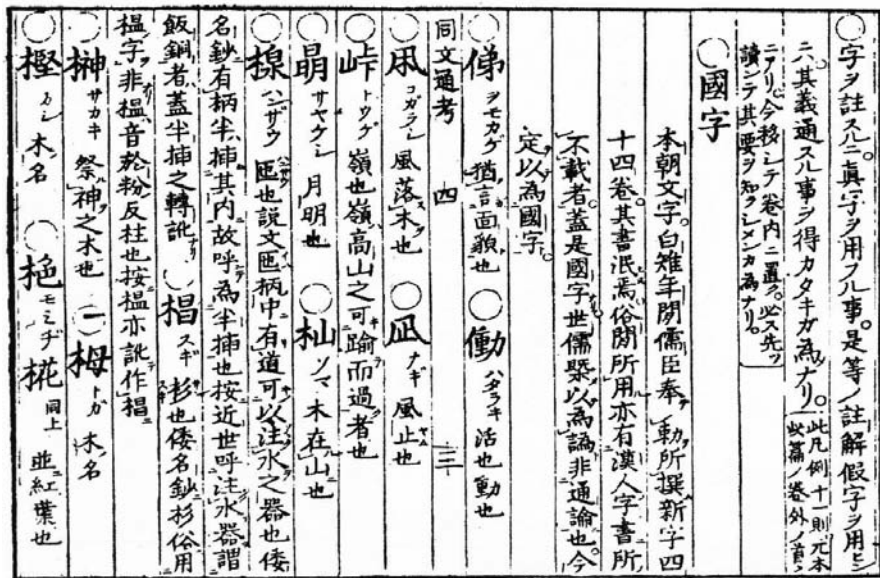 ○字ヲ註スルニ真字ヲ用フル事。是等ノ註解假字ヲ用ヒシ
ニハ其義通スル事ヲ得カタキガ為ナリ。此凡例十一則元本此篇ノ巻外ノ首
ニアリ。今移シテ巻内ニ置ク。必ス先ツ
讀シテ其要ヲ知ラシメンカ為ナリ。
○國字
本朝文字。白雉年間儒臣奉勅所撰新字四
十四巻。其書泯焉。俗間所用亦有漢人字書所
不載者。蓋是國字。世儒槩以為譌非通論也。今
定以為國字。
○俤 ヲモカゲ 猶言面貌也 ○働 ハタラキ 活也動也
同文通考 四 三
○凩 コガラシ 風落木也 ○凪 ナギ 風止也
○峠 トウゲ 嶺也嶺高山之可踰而過者也
○朤 サヤケシ 月明也 ○杣 ソマ 木在山也
○楾 ハンザウ 匜也説文匜柄中有道可以注水之器也倭
名鈔有柄半挿其内故呼為半挿也按近世呼注水器謂
飯銅者蓋半挿之轉訛 ○椙 スギ 杉也倭名鈔杉俗用
榲字非榲音於粉反柱也按榲亦訛作椙
○榊 サカキ 祭神之木也 ○栂 トガ 木名
○樫 カシ 木名 ○栬 モミヂ 椛 同上 並紅葉也